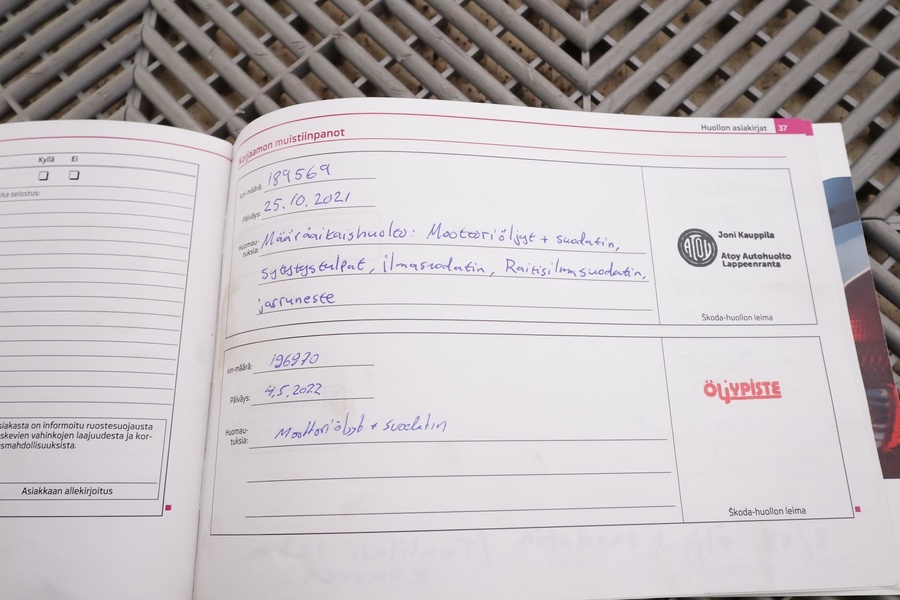 Kyllä Ei
selostus:
siakasta on informoitu ruostesuojausta
skevien vahinkojen laajuudesta ja kor-
smahdollisuuksista.
Asiakkaan allekirjoitus
Huollon asiakirjat 37
Korjaamon muistiinpanot
km-määrä: 189569
Päiväys: 25.10.2021
Huomau-
tuksia:
Määräaikaishuolto: Moottoriöljyt + suodatin,
sytytystulpat, ilmasuodatin, Raitisilmasuodatin,
jarruneste
ATOY
Joni Kauppila
Atoy Autohuolto
Lappeenranta
Škoda-huollon leima
km-määrä: 196970
Päiväys: 4.5.2022
Huomau-
tuksia:
Moottoriöljyt + suodatin
ÖLJYPISTE
Škoda-huollon leima